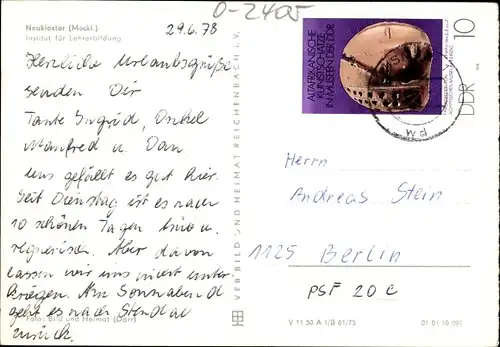 Neukloster (Meckl.)
Institut für Lehrerbildung
29.6.78
0-2405
Herzliche Urlaubsgrüße
senden Dir
Tante Ingrid, Onkel
Manfred u. Dan
Uns gefällt es gut hier.
Seit Dienstag ist es nach
10 schönen Tagen
regnerisch. Aber davon
lassen wir uns nicht unter
kriegen. Am Sonnabend
geht es nach Stendal
zurück.
Foto: Bild und Heimat (Darr)
VEB BILD UND HEIMAT REICHENBACH i. V.
ALTAFRIKANISCHE
KUNSTSCHÄTZE
IN MUSEEN DER DDR
10
DDR
Herrn
Andreas Stein
1125 Berlin
PSF 20 C
V 11 50 A 1/B 61/75
01 01 10 091